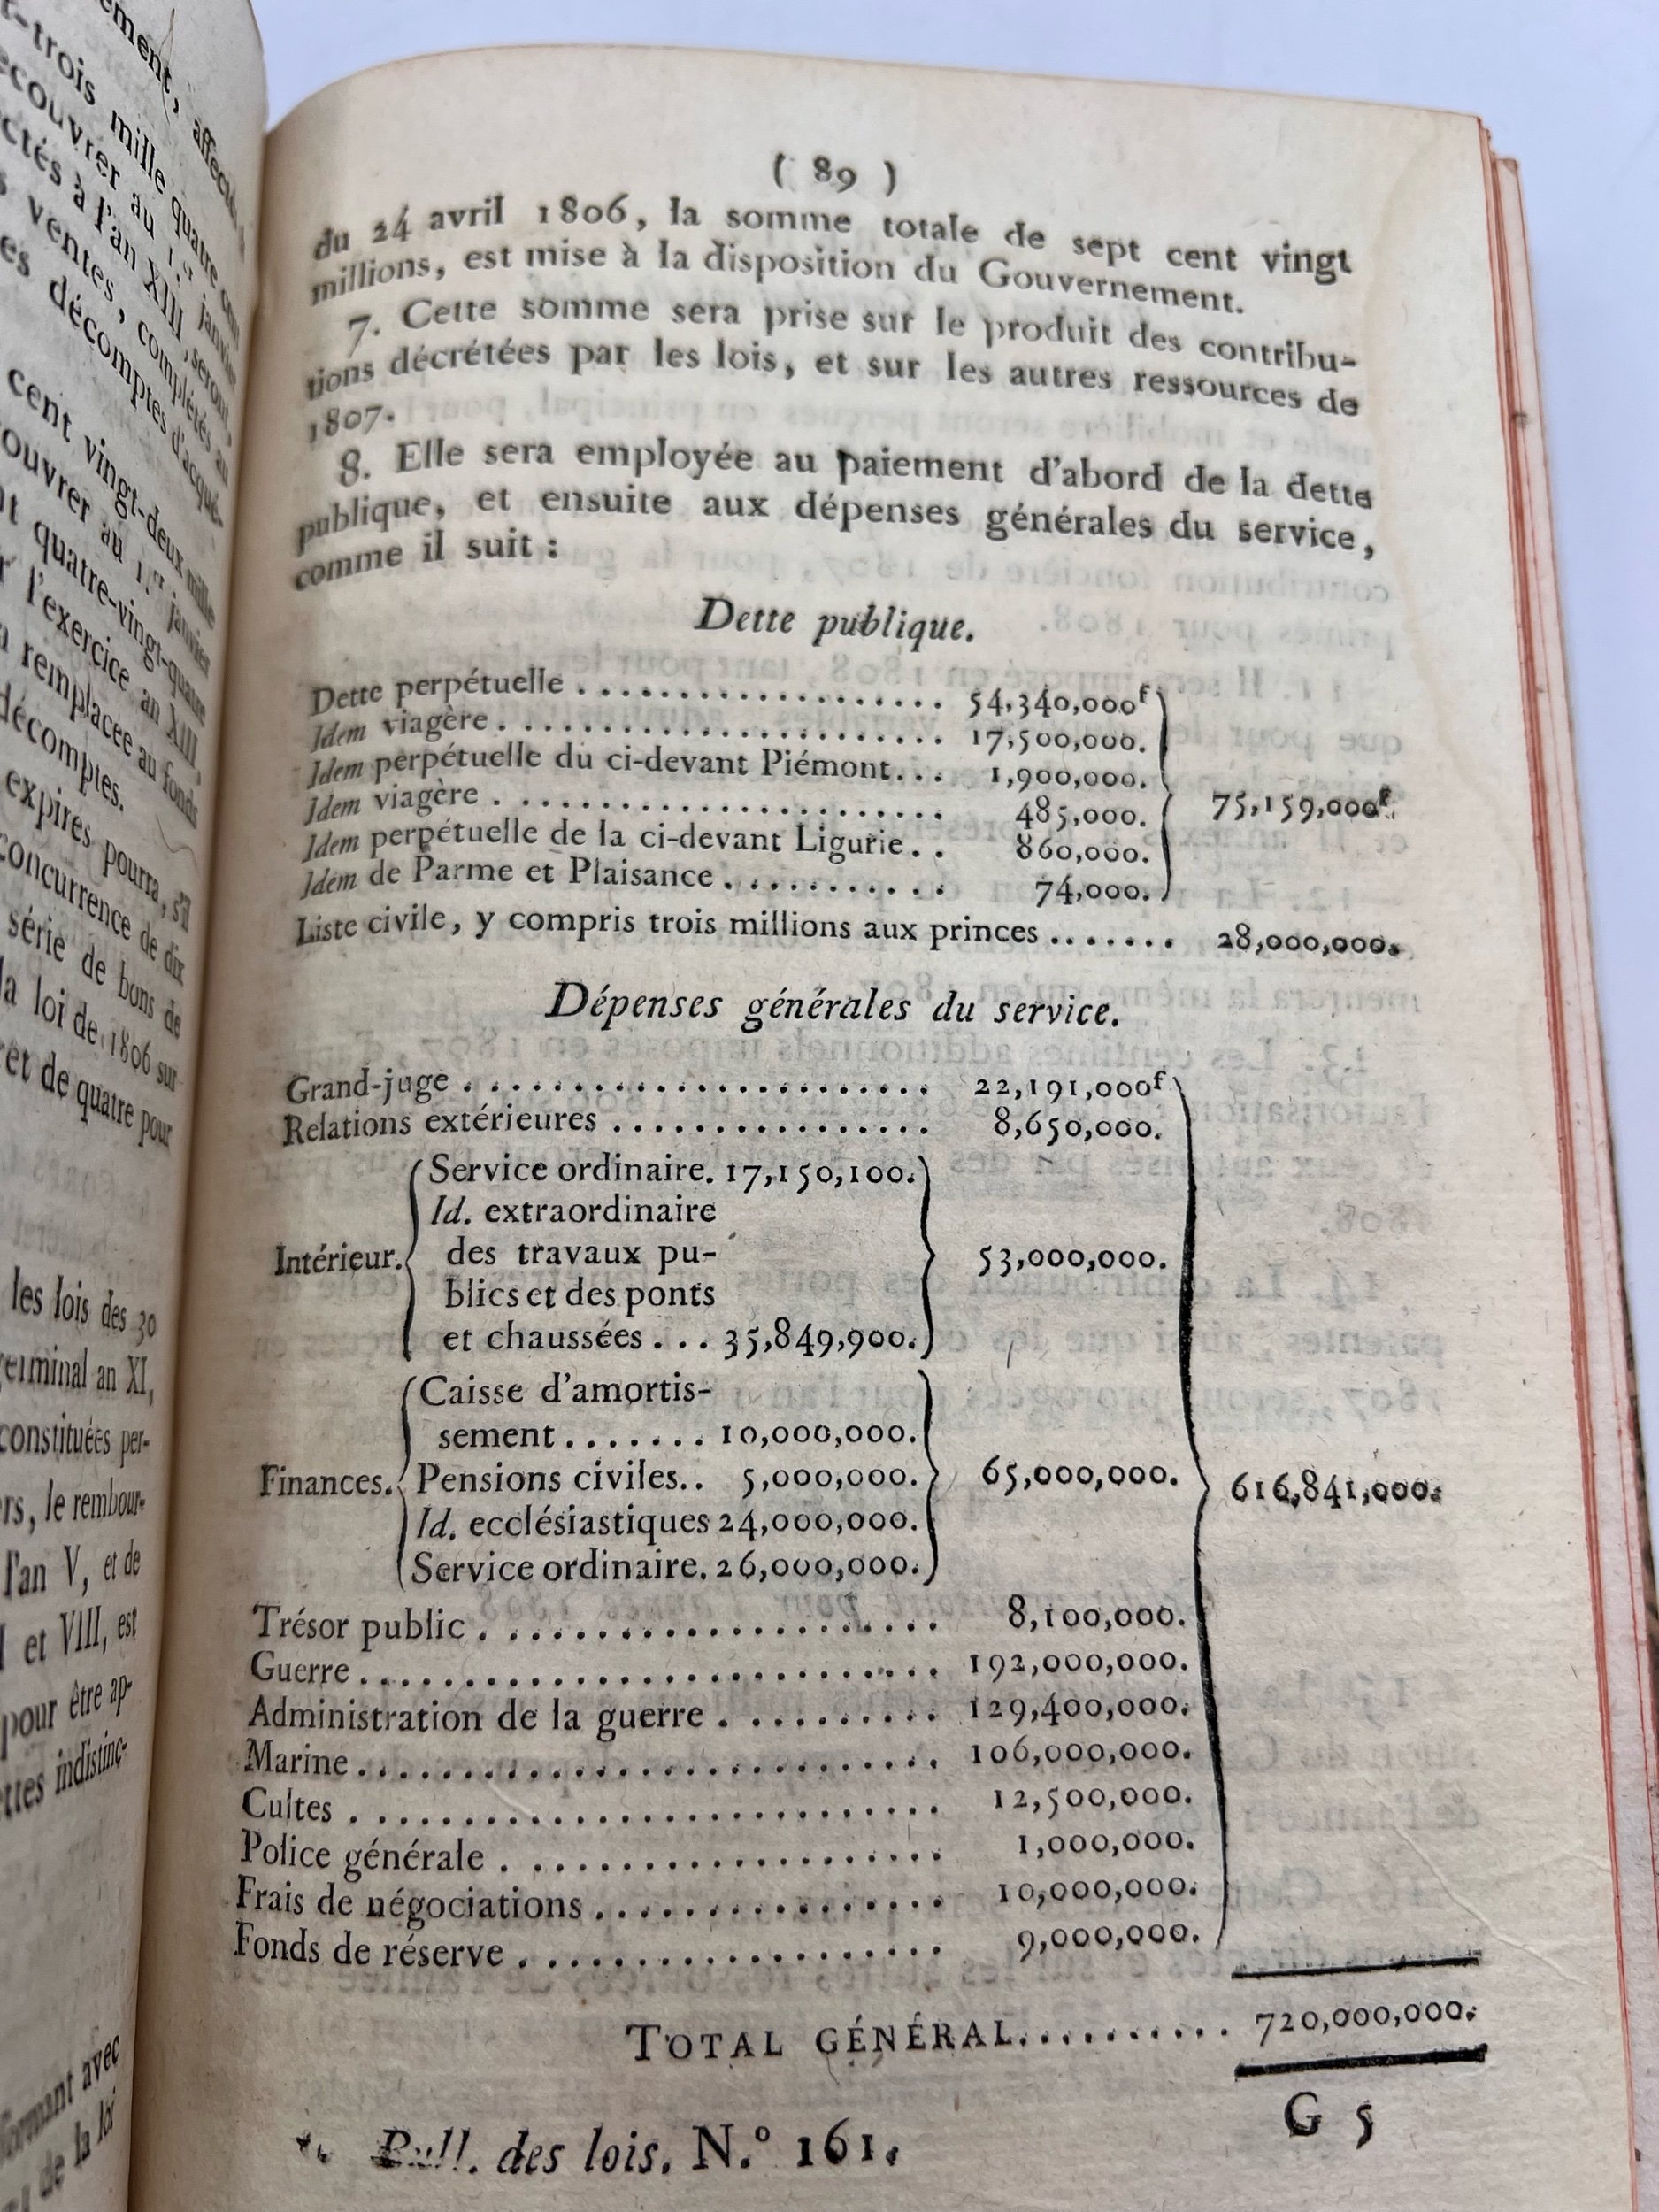 ement, affect
-trois mille quatre cent
ecouvrer au 1.er janvier
ctés à l'an XIII, seront,
s ventes, complétés au
es décomptes d'acqué-
cent vingt-deux mille
ouvrer au 1.er janvier
t quatre-vingt-quatre
r l'exercice an XIII,
a remplacée au fonds
décomptes.
expirés pourra, s'il
concurrence de dix
série de bons de
la loi de 1806 sur
et de quatre pour
les lois des 30
germinal an XI,
constituées per-
rs, le rembour-
l'an V, et de
I et VIII, est
pour être ap-
ttes indistinc-
formant avec
de la loi
( 89 )
du 24 avril 1806, la somme totale de sept cent vingt
millions, est mise à la disposition du Gouvernement.
7. Cette somme sera prise sur le produit des contribu-
tions décrétées par les lois, et sur les autres ressources de
1807.
8. Elle sera employée au paiement d'abord de la dette
publique, et ensuite aux dépenses générales du service,
comme il suit :
Dette publique.
Dette perpétuelle ................... 54,340,000f
Idem viagère ....................... 17,500,000.
Idem perpétuelle du ci-devant Piémont... 1,900,000.
Idem viagère ....................... 485,000. 75,159,000f.
Idem perpétuelle de la ci-devant Ligurie.. 860,000.
Idem de Parme et Plaisance ........... 74,000.
Liste civile, y compris trois millions aux princes ....... 28,000,000.
Dépenses générales du service.
Grand-juge ........................ 22,191,000f
Relations extérieures ................ 8,650,000.
Service ordinaire. 17,150,100.
Id. extraordinaire
Intérieur. des travaux pu- 53,000,000.
blics et des ponts
et chaussées ... 35,849,900.
Caisse d'amortis-
sement ....... 10,000,000.
Finances. Pensions civiles.. 5,000,000. 65,000,000. 616,841,000.
Id. ecclésiastiques 24,000,000.
Service ordinaire. 26,000,000.
Trésor public ........................ 8,100,000.
Guerre .............................. 192,000,000.
Administration de la guerre .......... 129,400,000.
Marine .............................. 106,000,000.
Cultes .............................. 12,500,000.
Police générale ...................... 1,000,000.
Frais de négociations ................ 10,000,000.
Fonds de réserve ..................... 9,000,000.
TOTAL GÉNÉRAL........... 720,000,000.
Bull. des lois. N.º 161. G 5